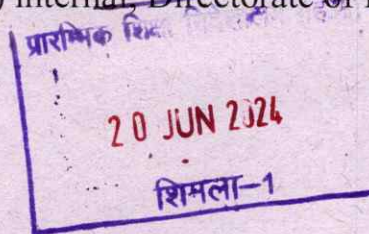 internal, Directorate of
प्रारम्भिक
20 JUN 2024
शिमला-1